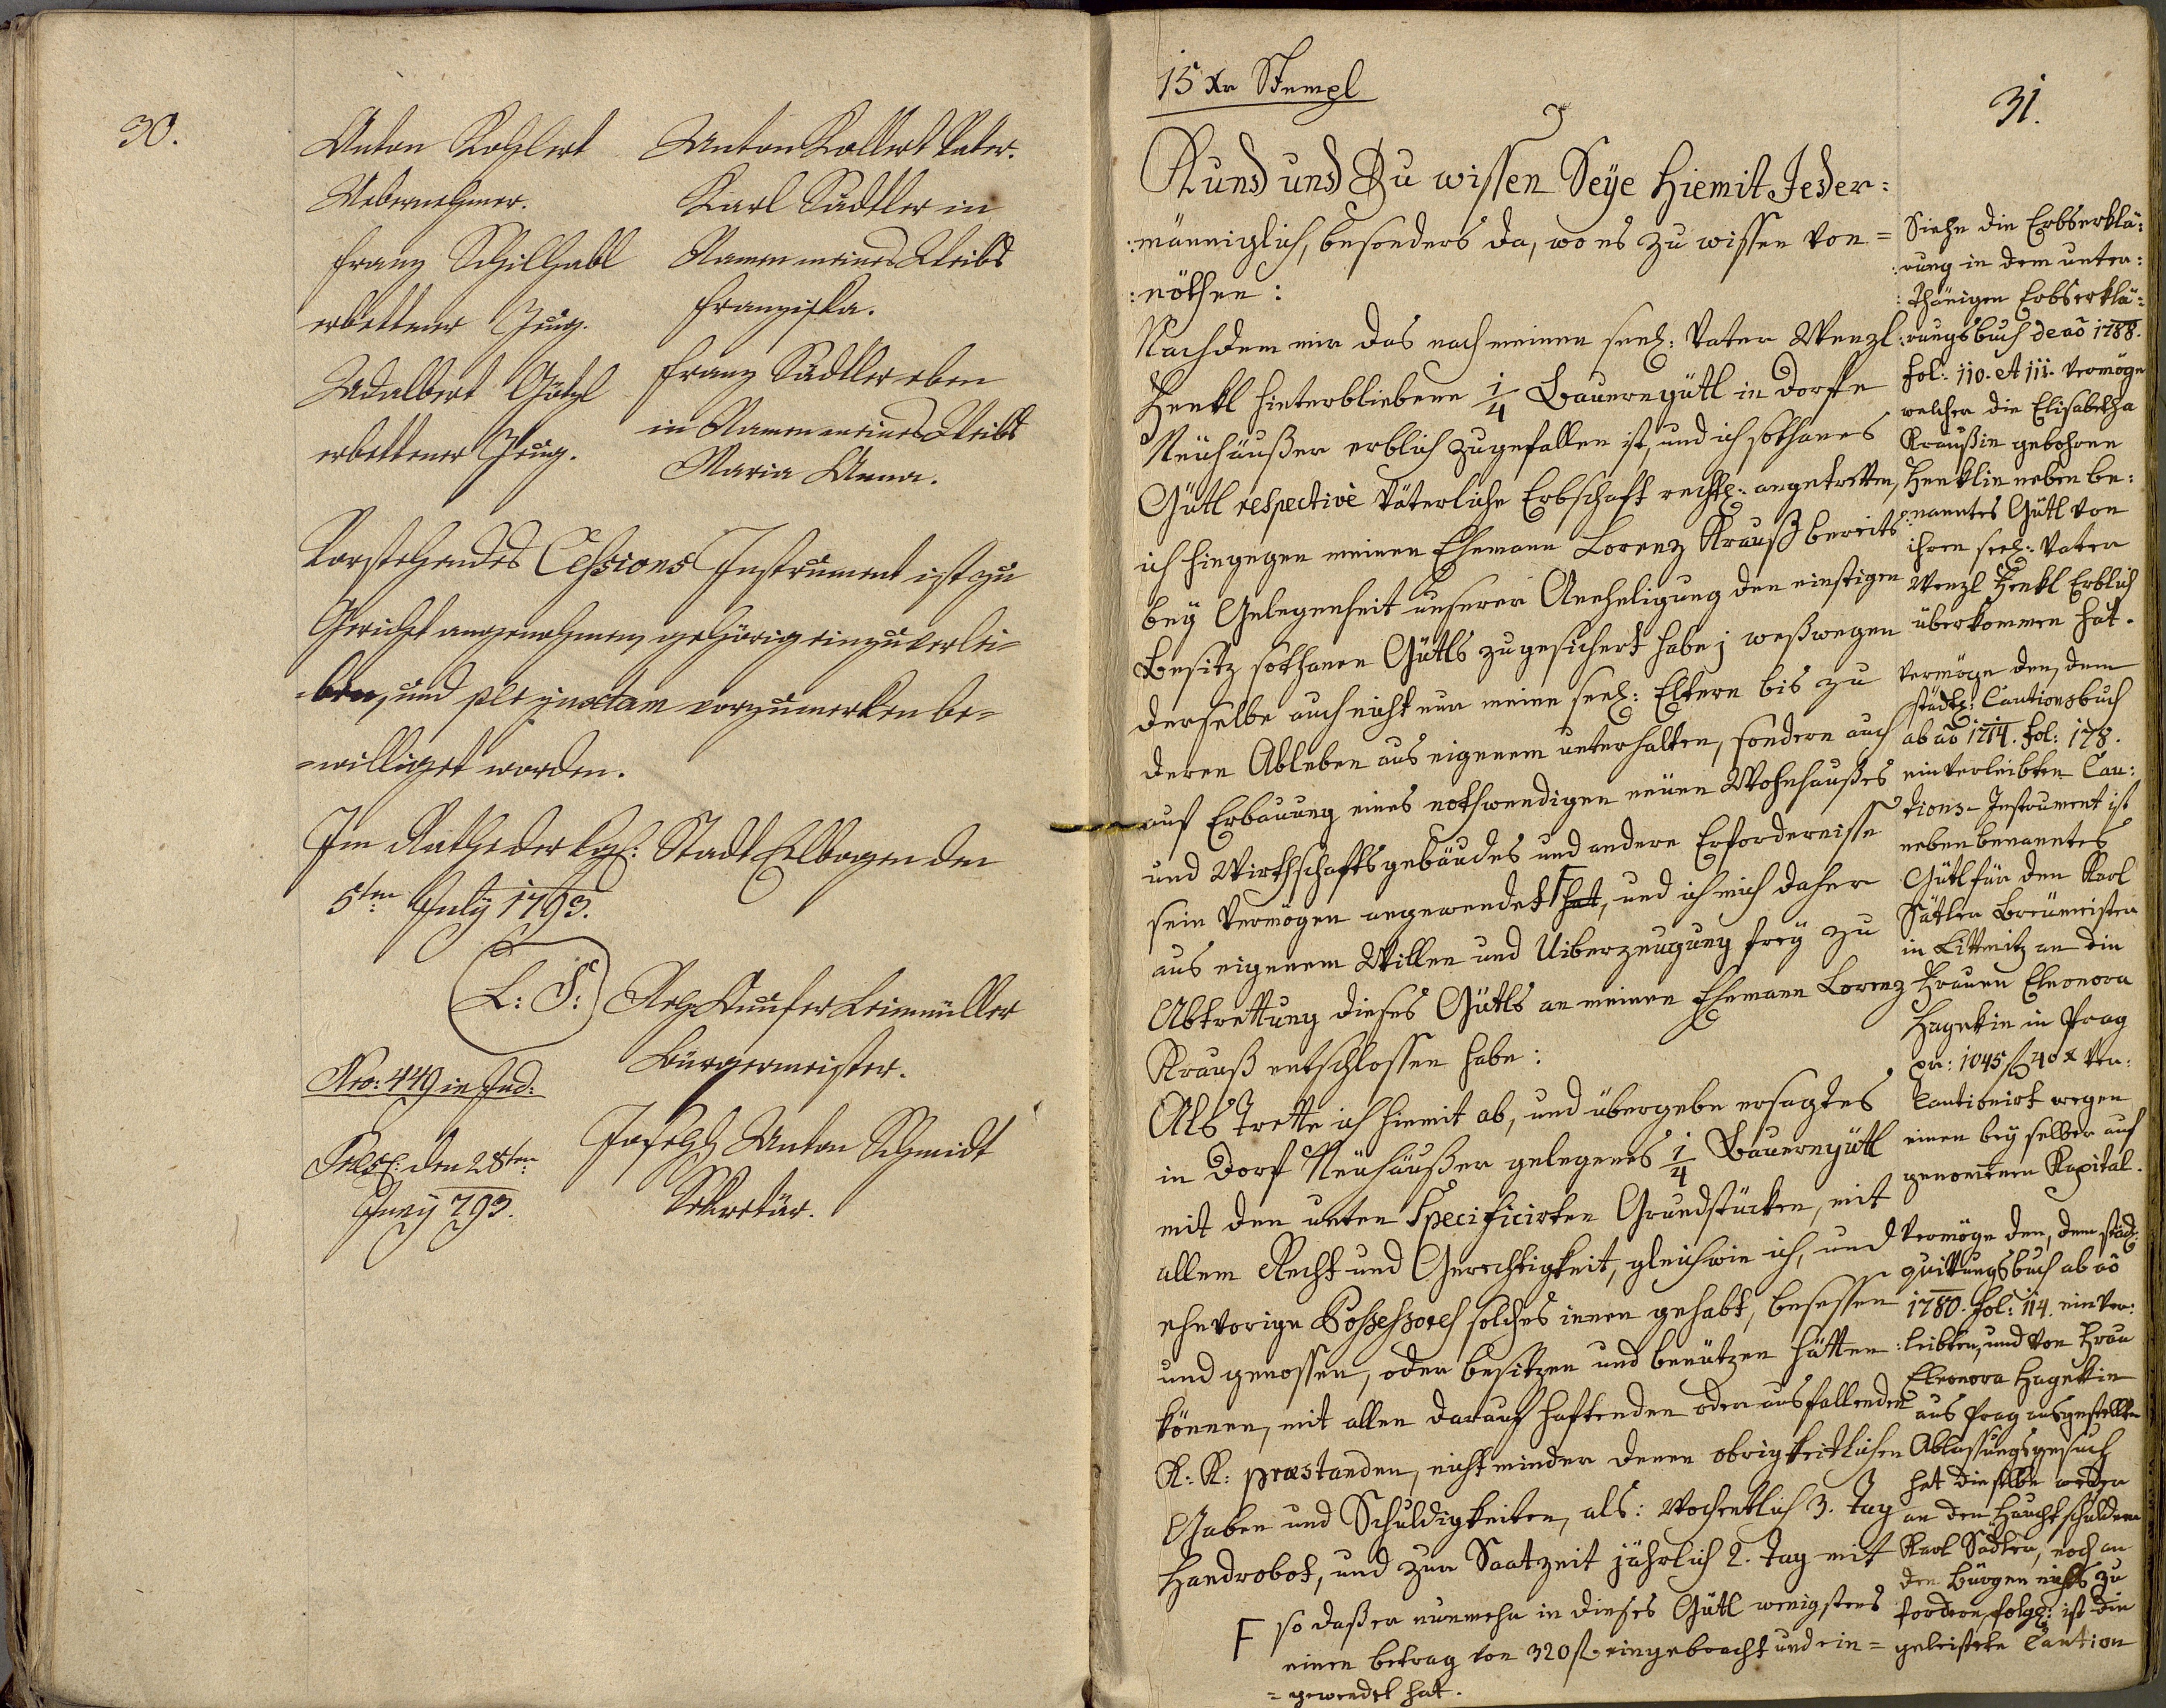 30.
Anton Kohlert
Uebernehmer.
Franz Schilhabl
erbettener Zeug.
Adalbert Götzl
erbettener Zeug.
Anton Kollert Vater.
Karl Sädtler in
Namen meines Weibs
Franziska.
Franz Sädtler eben
in Namen meines Weibs
Maria Anna.
Vorstehendes Cessions Instrument ist zu
Gericht angenohmen, gehörig einzuverlei=
=ben, und ple juxtam vorzumerken be=
=williget worden.
Im Rathe der kgl: Stadt Elbogen den
5ten July 1793.
L: S:
Leinmüller
Bürgermeister.
Nro: 449 in Jud:
Joseph Anton Schmidt
Sekretär.
den 28ten
Juny 793.
15 Xr Stempl
31.
Kund und Zu wissen Seÿe hiemit Jeder=
:männiglich, besonders da, wo es zu wissen von=
:nöthen:
Nachdem mir das nach meinen seel: Vater Wenzl
Henkl hinterbliebene 1/4 Bauerngütl in Dorfe
Neühäußer erblich zugefallen ist, und ich sothanes
Gütl respectivè Väterliche Erbschaft rechtl: angetretten,
ich hingegen meinen Ehemann Lorenz Krauß bereits
beÿ Gelegenheit unserer Aneheligung den einstigen
Besitz sothanen Gütls zugesichert habe; weßwegen
derselbe auch nicht nur meine seel: Eltern bis zu
deren Ableben aus eigenem unterhalten, sondern auch
auf Erbauung eines nothwendigen neuen Wohnhaußes
und Wirthschaftsgebäudes und andere Erfordernisse
sein Vermögen angewendet F hat, und ich mich daher
aus eigenem Willen und Uiberzeugung freÿ zu
Abtrettung dieses Gütls an meinen Ehemann Lorenz
Krauß entschlossen habe:
Als Trette ich hiemit ab, und übergebe ersagtes
in Dorf Neühäußer gelegenes 1/4 Bauerngütl
mit den unten Specificirten Grundstücken, mit
allem Recht und Gerechtigkeit, gleichwie ich, und
ehevorige Possessores solches innen gehabt, besessen
und genossen, oder besitzen und benützen hätten
können, mit allen darauf haftenden oder ausfallenden
K: K: præstanden, nicht minder denen obrigkeitlichen
Gaben und Schuldigkeiten, als: Wochentlich 3. Tag
Handrobot, und zur Saatzeit jährlich 2. Tag mit
F so daß er nunmehr in dieses Gütl wenigstens
einen Betrag von 320 fl. eingebracht und ein=
=gewendet hat.
Siehe die Erbserklä:
:rung in dem unter:
:thänigen Erbserklä:
:rungsbuch de aõ 1788.
fol: 110. et 111. vermög
welcher die Elisabetha
Kraußin gebohrne
Henklin neben be:
:nanntes Gütl von
ihren seel: Vater
Wenzl Henkl Erblich
überkommen hat.
Vermöge den, dem
städtl: Cautionsbuch
ab aõ 1714. fol: 178.
einverleibten Cau:
tions-Instrument ist
nebenbenanntes
Gütl für den Karl
Sätler Breümeister
in Littmitz an die
Frauen Eleonora
Hagekin in Prag
pr: 1045 fl 40 x ver:
Cautionirt wegen
einen beÿ selber auf
genomenen Kapital.
Vermöge den, dem städ:
quittungsbuch ab aõ
1780. fol: 114. einver:
:leibten, und von Frau
Eleonora Hagekin
aus Prag ausgestellten
Ablassungsgesuch
hat dieselbe weder
an den Hauptschuldner
Karl Sädler, noch an
den Bürgen nichts zu
fordern, folgl: ist die
geleistete Caution